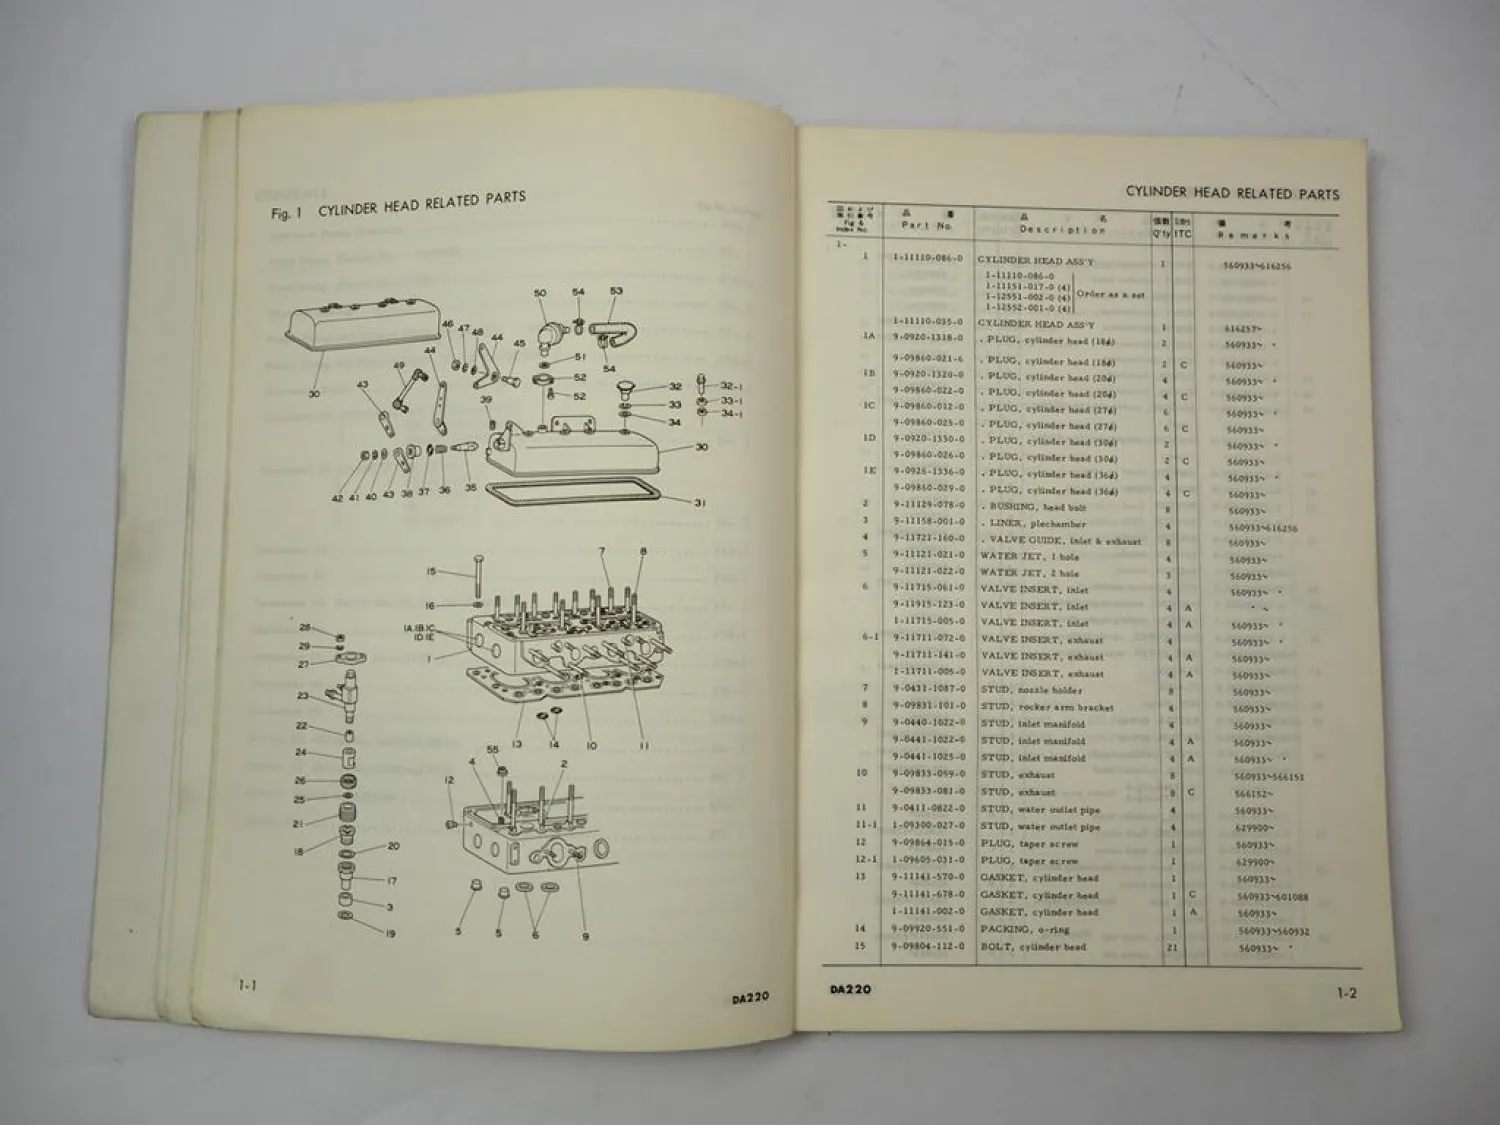 Fig. 1 CYLINDER HEAD RELATED PARTS
50 54 53
46 47 48 44 45
44 51
49 54
30 43 52 32 32-1
39 52 33 33-1
34 34-1
30
42 41 40 43 38 37 36 35
31
7 8
15
16
28 1A.1B.1C
29 1D.1E
27 1
23
22 13 14 10 11
24 55
4 2
26 12
25
21
18 20
17
3
19 5 5 6 9
1-1
DA220
CYLINDER HEAD RELATED PARTS
Fig & Index No. 品番 Part No. 品名 Description 個数 Q'ty ITC 備考 Remarks
1-
1 1-11110-086-0 CYLINDER HEAD ASS'Y 1 560933~616256
1-11110-086-0
1-11151-017-0 (4)
1-12551-002-0 (4) Order as a set
1-12552-001-0 (4)
1-11110-035-0 CYLINDER HEAD ASS'Y 1 616257~
1A 9-0920-1318-0 . PLUG, cylinder head (18ø) 2 560933~ *
9-09860-021-6 . PLUG, cylinder head (18ø) 2 C 560933~
1B 9-0920-1320-0 . PLUG, cylinder head (20ø) 4 560933~ *
9-09860-022-0 . PLUG, cylinder head (20ø) 4 C 560933~
1C 9-09860-012-0 . PLUG, cylinder head (27ø) 6 560933~ *
9-09860-025-0 . PLUG, cylinder head (27ø) 6 C 560933~
1D 9-0920-1330-0 . PLUG, cylinder head (30ø) 2 560933~ *
9-09860-026-0 . PLUG, cylinder head (30ø) 2 C 560933~
1E 9-0926-1336-0 . PLUG, cylinder head (36ø) 4 560933~ *
9-09860-029-0 . PLUG, cylinder head (36ø) 4 C 560933~
2 9-11129-078-0 . BUSHING, head bolt 8 560933~
3 9-11158-001-0 . LINER, plechamber 4 560933~616256
4 9-11721-160-0 . VALVE GUIDE, inlet & exhaust 8 560933~
5 9-11121-021-0 WATER JET, 1 hole 4 560933~
9-11121-022-0 WATER JET, 2 hole 3 560933~
6 9-11715-061-0 VALVE INSERT, inlet 4 560933~ *
9-11915-123-0 VALVE INSERT, inlet 4 A " ~
1-11715-005-0 VALVE INSERT, inlet 4 A 560933~ *
6-1 9-11711-072-0 VALVE INSERT, exhaust 4 560933~ *
9-11711-141-0 VALVE INSERT, exhaust 4 A 560933~
1-11711-005-0 VALVE INSERT, exhaust 4 A 560933~
7 9-0431-1087-0 STUD, nozzle holder 8 560933~
8 9-09831-101-0 STUD, rocker arm bracket 4 560933~
9 9-0440-1022-0 STUD, inlet manifold 4 560933~
9-0441-1022-0 STUD, inlet manifold 4 A 560933~
9-0441-1025-0 STUD, inlet manifold 4 A 560933~ *
10 9-09833-059-0 STUD, exhaust 8 560933~566151
9-09833-081-0 STUD, exhaust 8 C 566152~
11 9-0411-0822-0 STUD, water outlet pipe 4 560933~
11-1 1-09300-027-0 STUD, water outlet pipe 4 629900~
12 9-09864-015-0 PLUG, taper screw 1 560933~
12-1 1-09605-031-0 PLUG, taper screw 1 629900~
13 9-11141-570-0 GASKET, cylinder head 1 560933~
9-11141-678-0 GASKET, cylinder head 1 C 560933~601088
1-11141-002-0 GASKET, cylinder head 1 A 560933~
14 9-09920-551-0 PACKING, o-ring 1 560933~560932
15 9-09804-112-0 BOLT, cylinder head 21 560933~ *
DA220
1-2